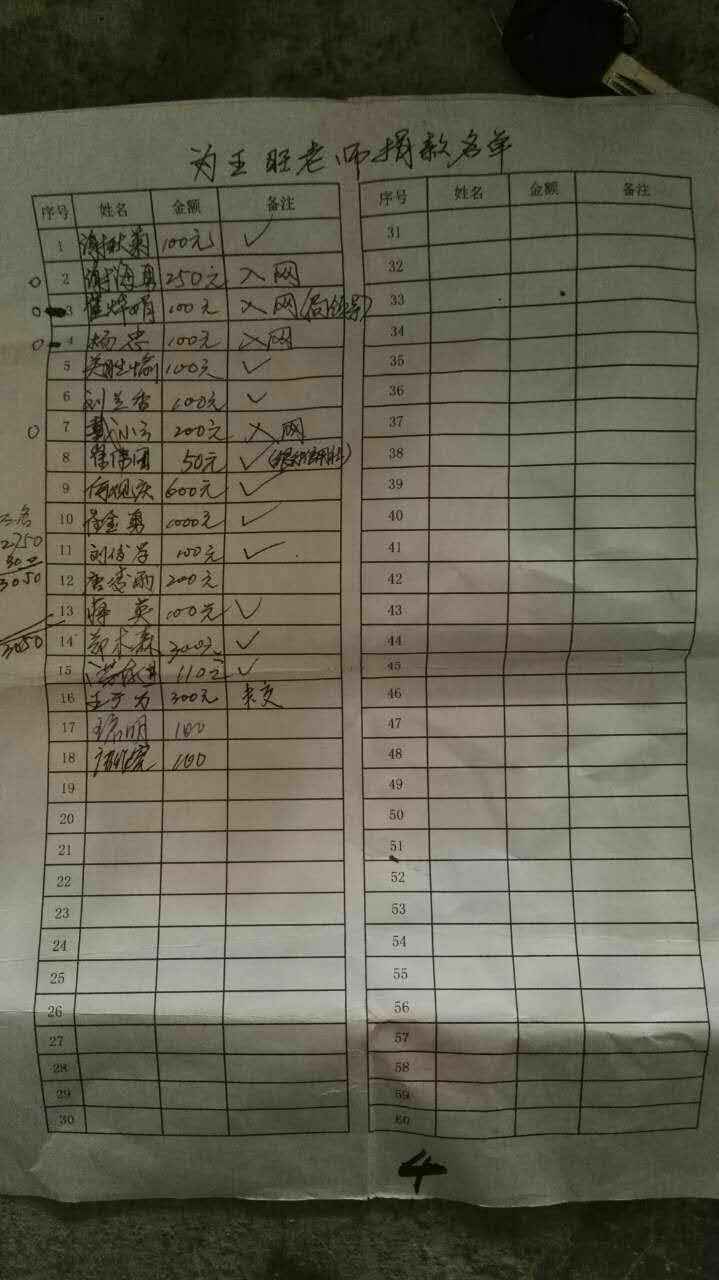 为王旺老师捐款名单
序号 姓名 金额 备注
1 谢秋菊 100元 ✓
2 谢海勇 250元 入网
3 100元 入网
4 杨忠 100元 入网
5 吴胜愉 100元 ✓
6 刘兰香 100元 ✓
7 戴小云 200元 入网
8 50元 ✓
9 600元 ✓
10 金勇 1000元 ✓
11 刘俊学 100元 ✓
12 唐秀雨 200元
13 蒋英 100元 ✓
14 郑木森 300元 ✓
15 110元 ✓
16 王于为 300元 未交
17 明 100
18 100
19
20
21
22
23
24
25
26
27
28
29
30
2750
300
3050
3050
序号 姓名 金额 备注
31
32
33
34
35
36
37
38
39
40
41
42
43
44
45
46
47
48
49
50
51
52
53
54
55
56
57
58
59
60
4